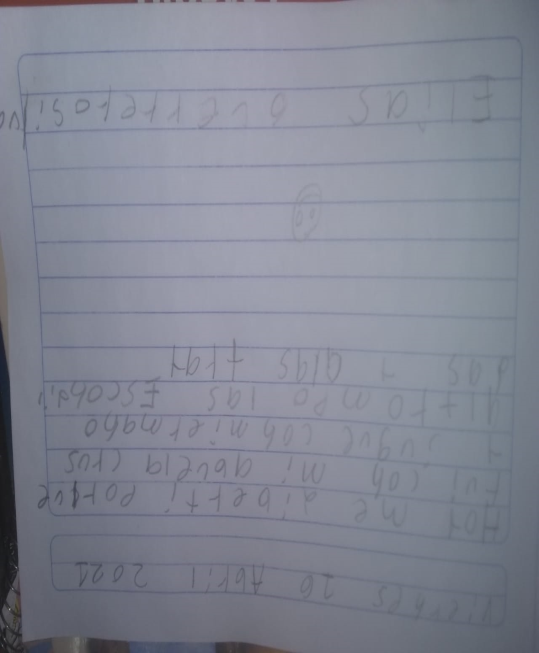 Vierhes 26 Abril 2021
Hoy me diberti Porque
Fui coh mi abuela crus
y jugue coh mi ermaho
al trompo las Escohdi
das y alas tray
Elias Guerrero Si